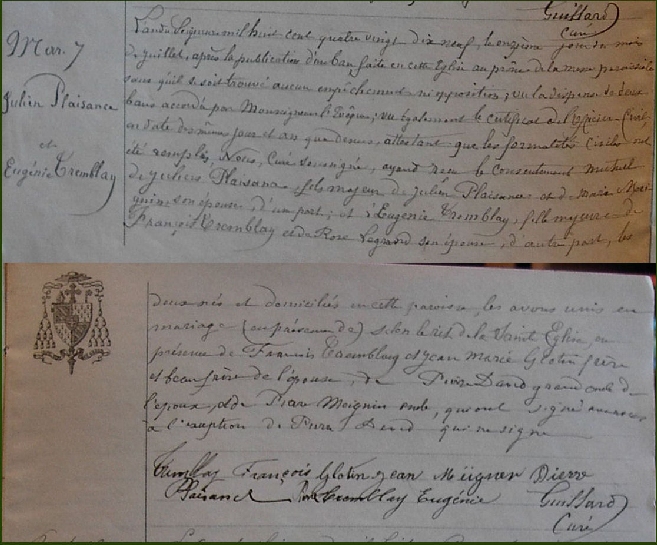 Guillard
Curé
Mar. 7
Julien Plaisance
et
Eugénie Tremblay
L'an du Seigneur mil huit cent quatre vingt dix neuf, le onzième jour du mois
de Juillet, après la publication d'un ban faite en cette Eglise au prône de la messe paroissiale
sans qu'il se soit trouvé aucun empêchement ni opposition; vu la dispense de deux
bans accordé par Monseigneur l'Evêque; vu également le certificat de l'Officier Civil
en date du même jour et an que dessus, attestant que les formalités civiles ont
été remplis, Nous, Curé soussigné, ayant reçu le consentement mutuel
de Julien Plaisance fils majeur de Julien Plaisance et de Marie
son épouse d'un part; et d'Eugénie Tremblay, fille majeure de
François Tremblay et de Rose Legrand son épouse, d'autre part, les
deux nés et domiciliés en cette paroisse, les avons unis en
mariage (en présence de) selon le rit de la Sainte Eglise, en
présence de Francois Tremblay et Jean Marie Glotin frère
et beau frère de l'épouse, de Pierre David grand oncle de
l'époux, et de Pierre Meignin oncle, qui ont signé avec nous
à l'exception de Pierre David qui ne signe
Tremblay François Glotin Jean Meigner Pierre
Plaisance Tremblay Eugénie Guillard
Curé